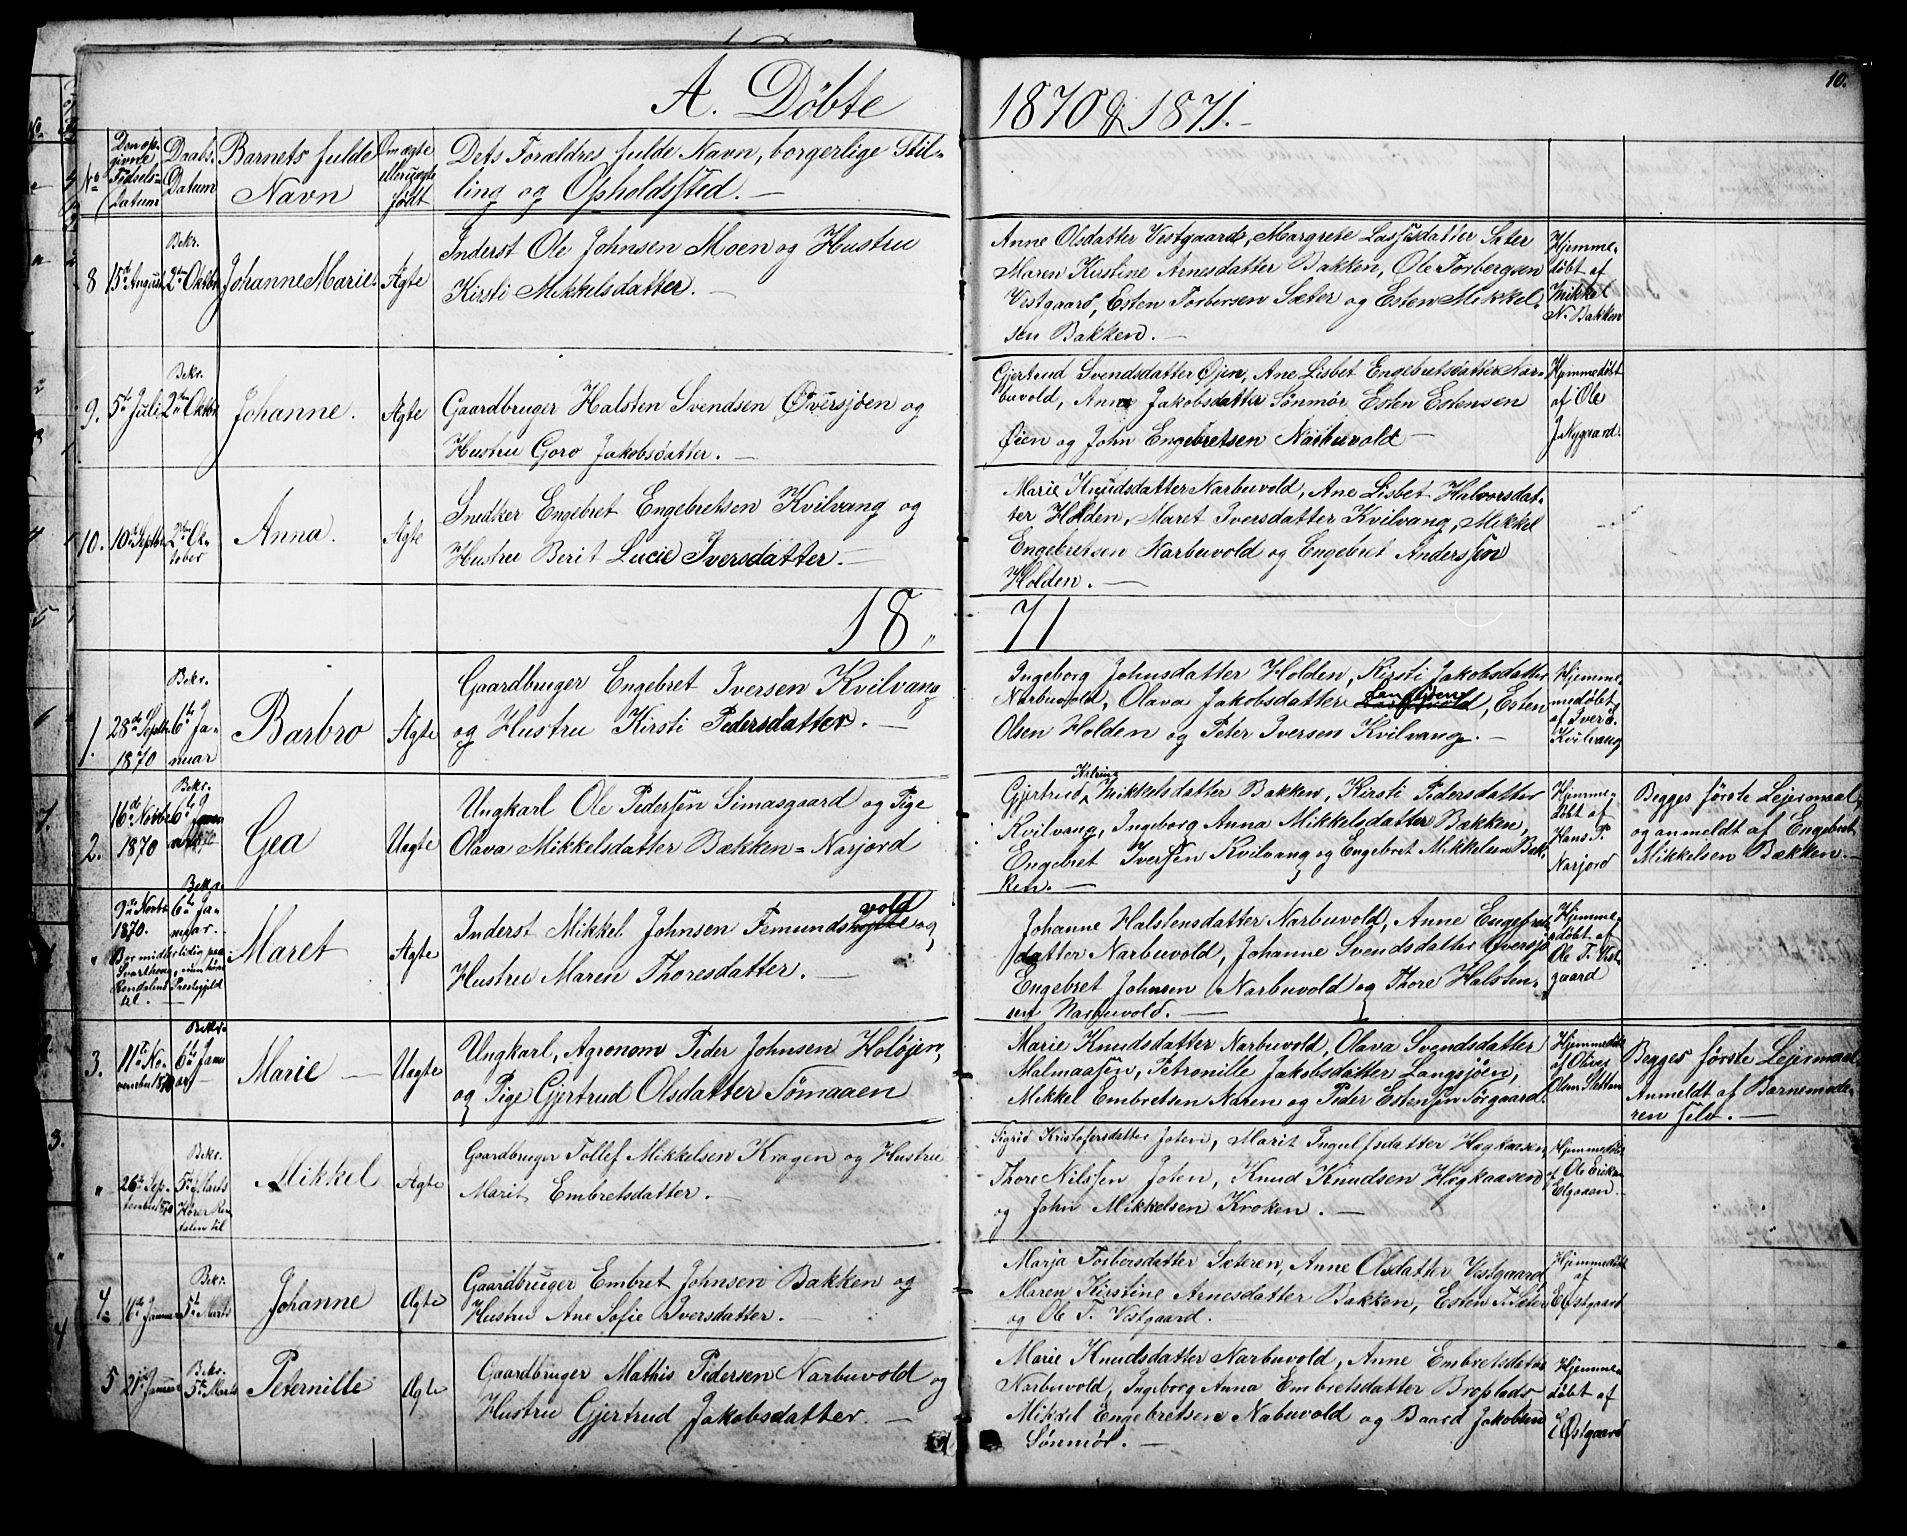 A. Döbte
1870 & 1871.-
10.
No
Den opgivne Födsels-datum
Daabs-Datum
Barnets fulde Navn
Om ægte ell. uægte födt
Dets Forældres fulde Navn, borgerlige Stil-
ling og Opholdssted. —
8
15de August
Bekr. 2den Oktbr
Johanne Marie.
Ægte
Inderst Ole Johnsen Moen og Hustru
Kirsti Mikkelsdatter. —
Anne Olsdatter Vestgaard, Margrete Lassesdatter Sæter
Maren Kirstine Arnesdatter Bakken, Ole Torbergsen
Vestgaard, Esten Torbersen Sæter og Esten Mikkel-
sen Bakken. —
Hjemme-
döbt af
Mikkel
N. Bakken
9.
5te Juli
Bekr. 2den Oktbr
Johanne.
Ægte
Gaardbruger Halsten Svendsen Øversjøen og
Hustru Goro Jakobsdatter. —
Gjertrud Svendsdatter Øjen, Ane Lisbet Engebretsdatter Nar-
buvold, Anne Jakobsdatter Sönmör Esten Estensen
Øien og John Engebretsen Narbuvold —
Hjemmedöbt
af Ole
J. Nygaard.
10.
10de Septbr
2den Ok-
tober
Anna.
Ægte
Snedker Engebret Engebretsen Kvilvang og
Hustru Berit Lucie Iversdatter. —
Marie Knudsdatter Narbuvold, Ane Lisbet Halvorsdat-
ter Holden, Maret Iversdatter Kvilvang, Mikkel
Engebretsen Narbuvold og Engebret Anderssen
Holden. —
18 71
1.
28de Septbr
1870
Bekr.
6te Ja-
nuar
Barbro
Ægte
Gaardbruger Engebret Iversen Kvilvang
og Hustru Kirsti Pedersdatter. —
Ingeborg Johnsdatter Holden, Kirsti Jakobsdatter
Narbuvold, Olava Jakobsdatter Langsjöen, Esten
Olsen Holden og Peter Iversen Kvilvang. —
Hjemme-
medöbt
af Iver E.
Kvilvang
2.
16de Novbr
1870
Bekr.
6te
Gea
Uægte
Ungkarl Ole Pederssen Simasgaard og Pige
Olava Mikkelsdatter Bækken = Narjord
Gjertrud Katrine Mikkelsdatter Bakken, Kirsti Pedersdatter
Kvilvang, Ingeborg Anna Mikkelsdatter Bækken,
Engebret Iverssen Kvilvang og Engebret Mikkelsen Bæk-
ken. —
Hjemme-
döbt af
Hans P.
Narjord
Begges første Lejermaal,
og anmeldt af Engebret
Mikkelsen Bækken. —
"
9de Novbr
1870.
Bekr.
6te Ja-
nuar —
Bor midlertidig paa
Maret
Ægte
Inderst Mikkel Johnsen Femundsvold og
Hustru Maren Thoresdatter. —
Johanne Halstensdatter Narbuvold, Anne Engebrets-
datter Narbuvold, Johanne Svendsdatter Øversjø
Engebret Johnsen Narbuvold og Thore Halsten-
sen Narbuvold. —
Hjemme-
döbt af
Ole T. Vest-
gaard
3.
11te No-
vember 1870
Bekr.
6te Janu
ar —
Marie —
Uægte
Ungkarl, Agronom Peder Johnsen Holöjen,
og Pige Gjertrud Olsdatter Tömaaen
Marie Knudsdatter Narbuvold, Olava Svendsdatter
Malmaasen, Petronille Jakobsdatter Langsjöen,
Mikkel Embretsen Naren og Peder Estensen Torgaard.
Hjemmedöbt
af Oliver
Olsen Sletten
Begges første Lejermaal
Anmeldt af Barnemode-
ren selv. —
"
26de Sep-
tember 1870
Bekr.
5te Marts
Hører Ren-
dalen til
Mikkel
Ægte
Gaardbruger Tollef Mikkelsen Krogen og Hustru
Marit Embretsdatter. —
Sigrid Kristofersdatter Joten, Marit Ingulfsdatter Høgkaasen,
Thore Nilssen Joten, Knud Knudsen Høgkaasen
og John Mikkelsen Kroken. —
Hjemmedöbt
af Ole Eriksen
Elgaaen. —
4.
11te Januar
Bekr.
5te Marts
Johanne
Ægte
Gaardbruger Embret Johnsen Bakken og
Hustru Ane Sofie Iversdatter. —
Marja Torbersdatter Sæteren, Anne Olsdatter Vestgaard,
Maren Kirstine Arnesdatter Bakken, Esten T. Sæter
og Ole T. Vestgaard. —
Hjemmedöbt
af
E. Østgaard
5
21de Januar
Bekr.
5te Marts
Peternille
Ægte
Gaardbruger Mathis Pedersen Narbuvold og
Hustru Gjertrud Jakobsdatter. —
Marie Knudsdatter Narbuvold, Anne Embretsdatter
Narbuvold, Ingeborg Anna Embretsdatter Broplads
Mikkel Engebretsen Nabuvold og Baard Jakobsen
Sönmör. —
Hjemme-
döbt af
E. Østgaard